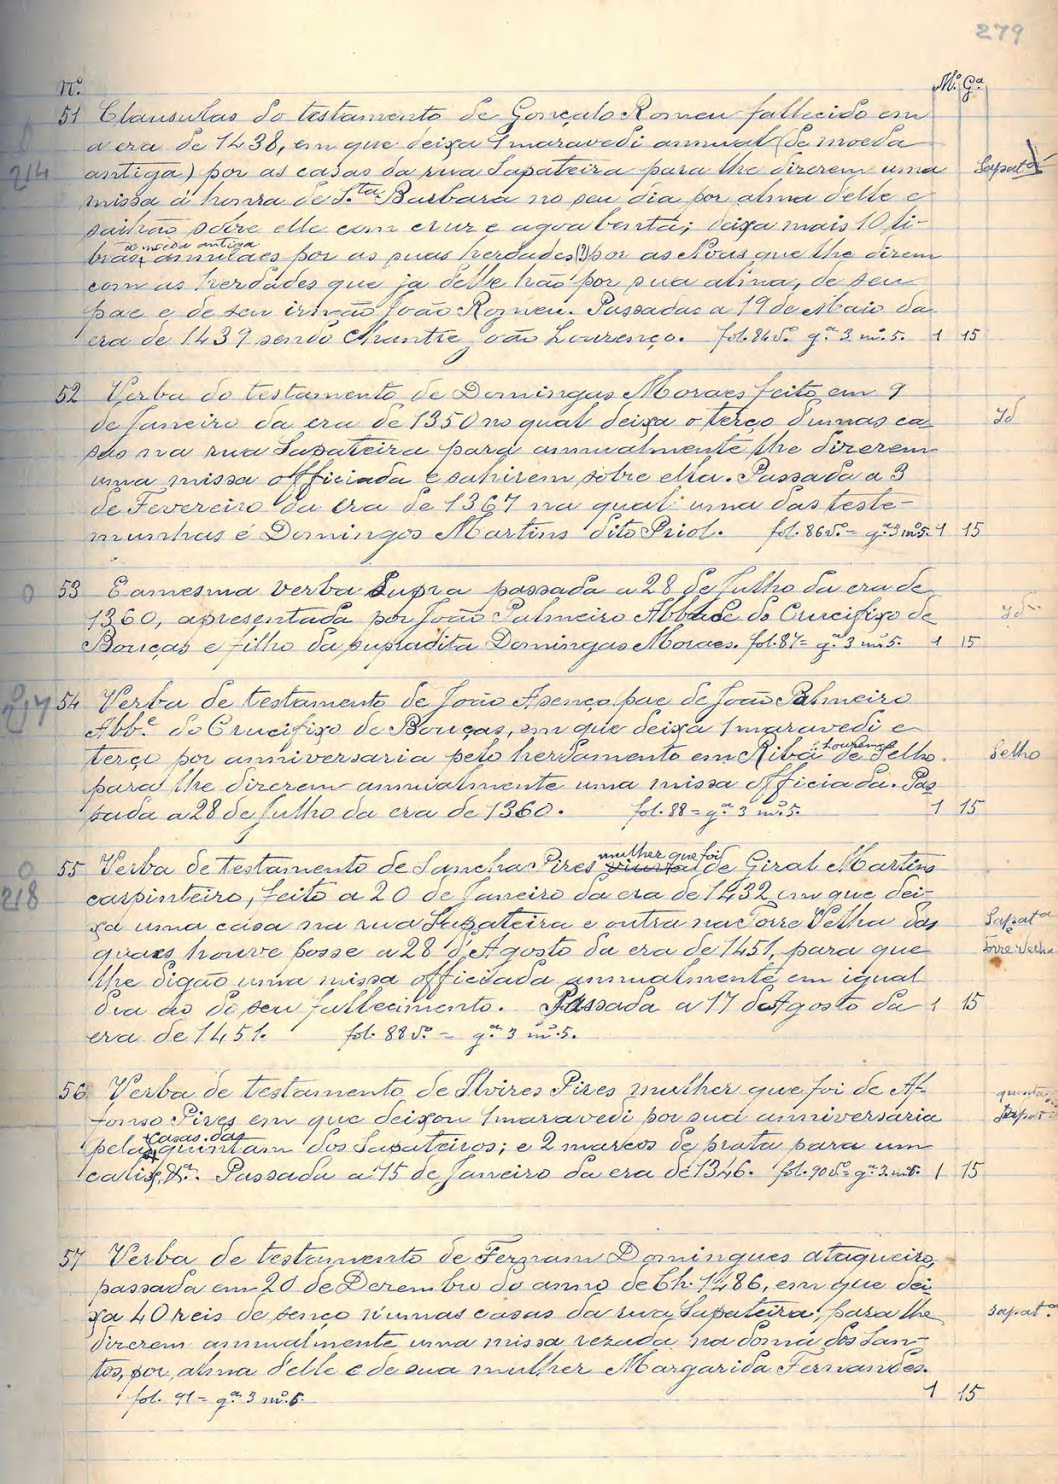 279
N.º Mº Gª
51 Clausulas do testamento de Gonçalo Romeu fallecido em
a era de 1438, em que deixa 1 maravedi annual (de moeda
214 antiga) por as casas da rua Sapateira para lhe dizerem uma Sapatª
missa á honra de S.ta Barbara no seu dia por alma delle e
saihão sobre elle com cruz e agoa benta; deixa mais 10 li-
de moeda antiga
bras annuaes por as suas herdades (?) por as Novas que lhe dizem
com as herdades que ja delle hão por sua alma, de seu
pae e de seu irmão João Romeu. Passadas a 19 de Maio da
era de 1439 sendo Chantre João Lourenço. fol. 86 vº. gª 3 mº. 5. 1 15
52 Verba do testamento de Domingas Moraes feito em 9
de Janeiro da era de 1350 no qual deixa o terço d'umas ca- Id
sas na rua Sapateira para annualmente lhe dizerem
uma missa officiada e sahirem sobre ella. Passada a 3
de Fevereiro da era de 1367 na qual uma das teste-
munhas é Domingos Martins dito Priol. fol. 86 vº = gª 3 mº 5. 1 15
0 53 E a mesma verba supra passada a 28 de Julho da era de
1360, apresentada por João Palmeiro Abbade do Crucifixo de Id
Bouças e filho da supradita Domingas Moraes. fol. 87 = gª 3 mº 5. 1 15
0
217 54 Verba de testamento de João Asenço pae de João Palmeiro
Abb.e do Crucifixo de Bouças, em que deixa 1 maravedi e
S. Lourenço
terço por anniversaria pelo herdamento em Riba de Selho. Selho
para lhe dizerem annualmente uma missa officiada. Pas-
sada a 28 de Julho da era de 1360. fol. 88 = gª 3 mº 5. 1 15
0 mulher que foi
55 Verba de testamento de Sancha Pires viuva de Giral Martins
218 carpinteiro, feito a 20 de Janeiro da era de 1432 em que dei-
xa uma casa na rua Sapateira e outra na Torre Velha das Sapatª e
quaes houve posse a 28 d'Agosto da era de 1451, para que torre velha
lhe digão uma missa officiada annualmente em igual
dia ao do seu fallecimento. Passada a 17 d'Agosto da 1 15
era de 1451. fol. 88 vº = gª 3 mº. 5.
56 Verba de testamento de Elvires Pires mulher que foi de Af-
fonso Pires em que deixou 1 maravedi por sua anniversaria quintã Sapatª
casas das
pelas quintam dos Sapateiros; e 2 marcos de prata para um
calix, &ª. Passada a 15 de Janeiro da era de 1346. fol. 90 vº = gª 3 mº 5. 1 15
57 Verba de testamento de Fernam Domingues ataqueiro,
passada em 20 de Dezembro do anno de Ch. 1486, em que dei-
xa 40 reis de senço n'umas casas da rua Sapateira, para lhe sapatª
dizerem annualmente uma missa rezada na domã dos San-
tos, por alma d'elle e de sua mulher Margarida Fernandes.
fol. 91 = gª 3 mº 5 1 15